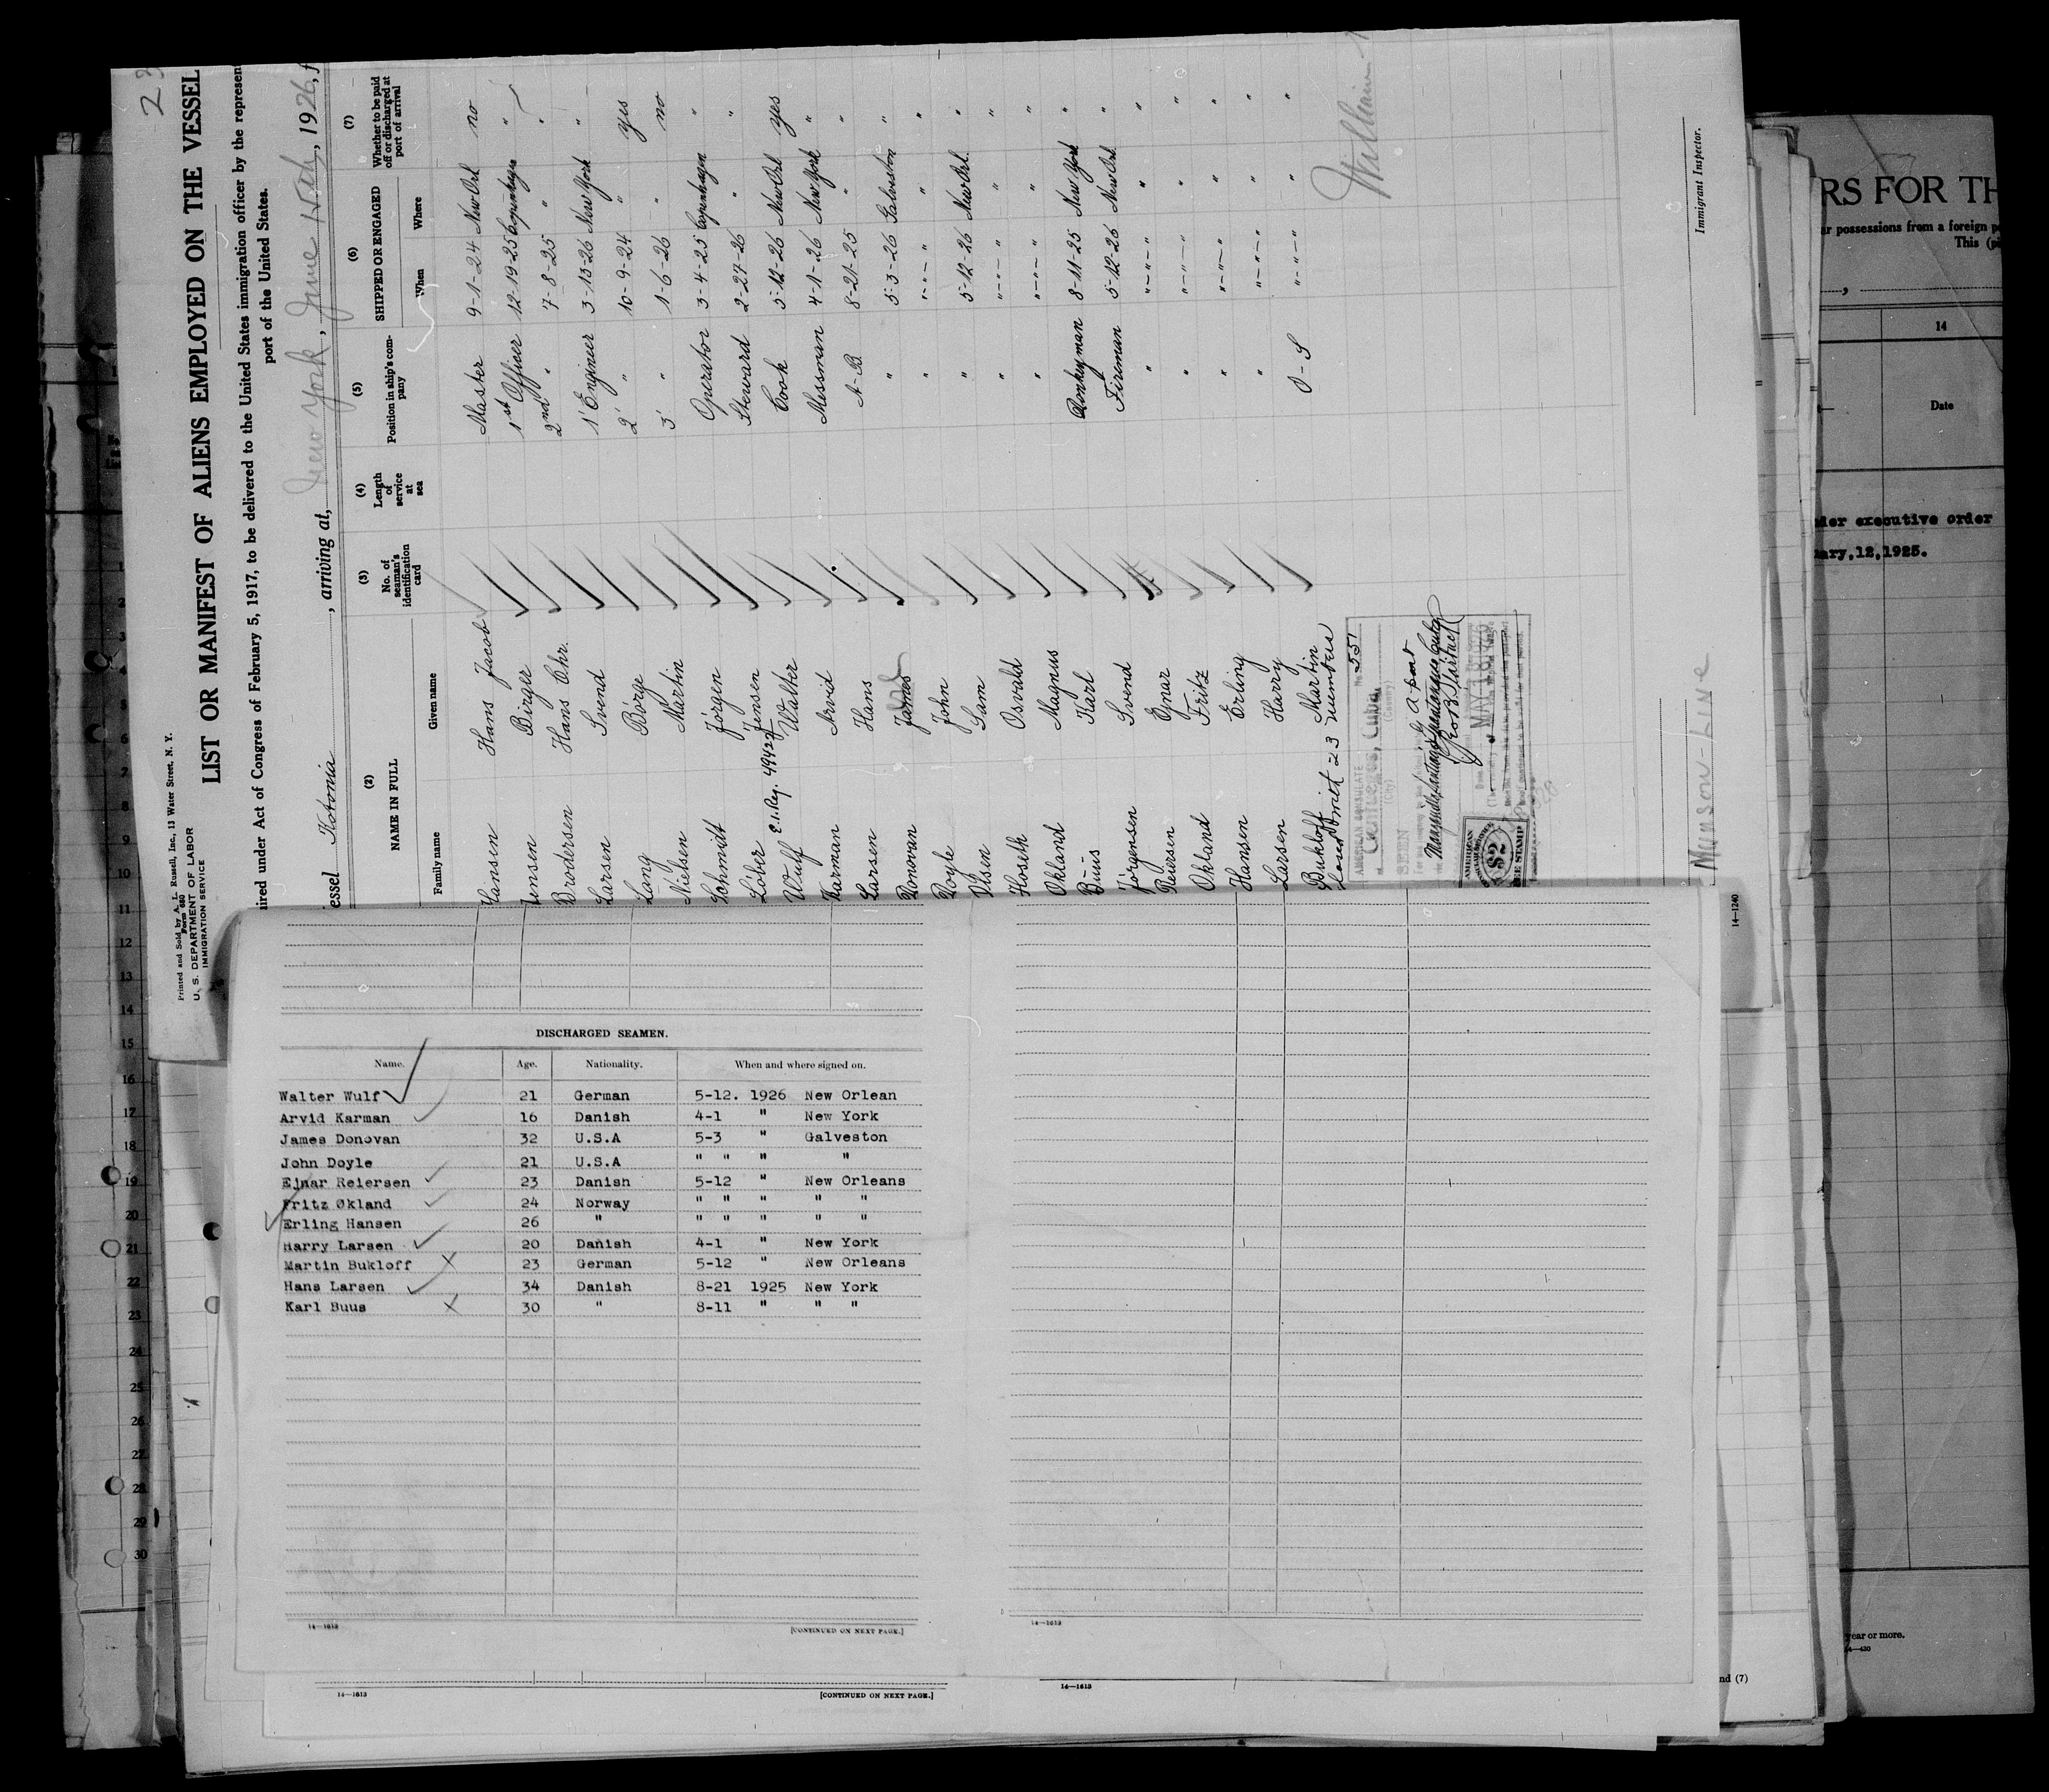 Printed and Sold by A. L. Russell, Inc., 13 Water Street, N. Y.
Form 680
U. S. DEPARTMENT OF LABOR
IMMIGRATION SERVICE
LIST OR MANIFEST OF ALIENS EMPLOYED ON THE VESSEL
ired under Act of Congress of February 5, 1917, to be delivered to the United States immigration officer by the represen
port of the United States.
essel Kotonia, arriving at, New York, June 10th, 1926, f
(2) (3) (4) (5) (6) (7)
NAME IN FULL No. of seaman's identification card Length of service at sea Position in ship's company SHIPPED OR ENGAGED Whether to be paid off or discharged at port of arrival
Family name Given name When Where
Hansen Hans Jacob Master 9-1-24 New Orl no
Jensen Birger 1st Officer 12-19-25 Copenhagen "
Brodersen Hans Chr. 2nd " 7-8-25 " "
Larsen Svend 1' Engineer 3-13-26 New York "
Lang Börge 2' " 10-9-24 " yes
Nielsen Martin 3' " 1-6-26 " no
Schmidt Jörgen Operator 3-4-25 Copenhagen "
Löber Jensen Steward 2-27-26 " "
Wulf E.I. Reg. 49427 Walter Cook 5-12-26 New Orl yes
Karman Arvid Messman 4-1-26 New York "
Larsen Hans A-B 8-21-25 " "
Donovan James " 5-3-26 Galveston "
Doyle John " "-"-" " "
Olsen Sam " 5-12-26 New Orl. "
Hoseth Osvald " "-"-" " "
Okland Magnus " "-"-" " "
Buus Karl Donkeyman 8-11-25 New York "
Jörgensen Svend Fireman 5-12-26 New Orl. "
Reiersen Ejnar " "-"-" " "
Okland Fritz " "-"-" " "
Hansen Erling " "-"-" " "
Larsen Harry " "-"-" " "
Bukloff Martin O-S "-"-" " "
23 members
AMERICAN CONSULATE No. 551
at Cienfuegos, Cuba
(City) (County)
SEEN
MAY 18 1926
AMERICAN
$2
FEE STAMP
William
Immigrant Inspector.
Munson-Line
14-1240
DISCHARGED SEAMEN.
Name. Age. Nationality. When and where signed on.
Walter Wulf 21 German 5-12. 1926 New Orlean
Arvid Karman 16 Danish 4-1 " New York
James Donovan 32 U.S.A 5-3 " Galveston
John Doyle 21 U.S.A " " " "
Ejnar Reiersen 23 Danish 5-12 " New Orleans
Fritz Økland 24 Norway " " " " "
Erling Hansen 26 " " " " " "
Harry Larsen 20 Danish 4-1 " New York
Martin Bukloff 23 German 5-12 " New Orleans
Hans Larsen 34 Danish 8-21 1925 New York
Karl Buus 30 " 8-11 " " "
14—1613 [CONTINUED ON NEXT PAGE.]
14—1613
14—1613 [CONTINUED ON NEXT PAGE.]
14—1613
2
3
4
5
6
7
8
9
10
11
12
13
14
15
16
17
18
19
20
21
22
23
24
25
26
27
28
29
30
RS FOR TH
ar possessions from a foreign p
This (pi
14
Date
der executive order
ary,12,1925.
year or more.
14—430
nd (7)